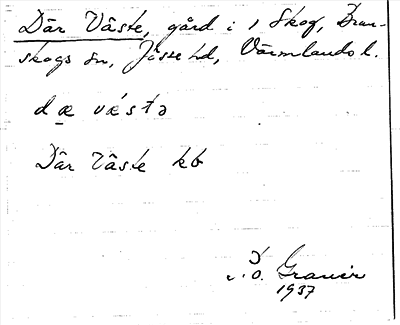 Där Väste, gård i 1 Skog, Brun-
skogs sn, Jösse hd, Värmlands l.
dæ væstə
Där Väste kb
T.O. Granér
1937